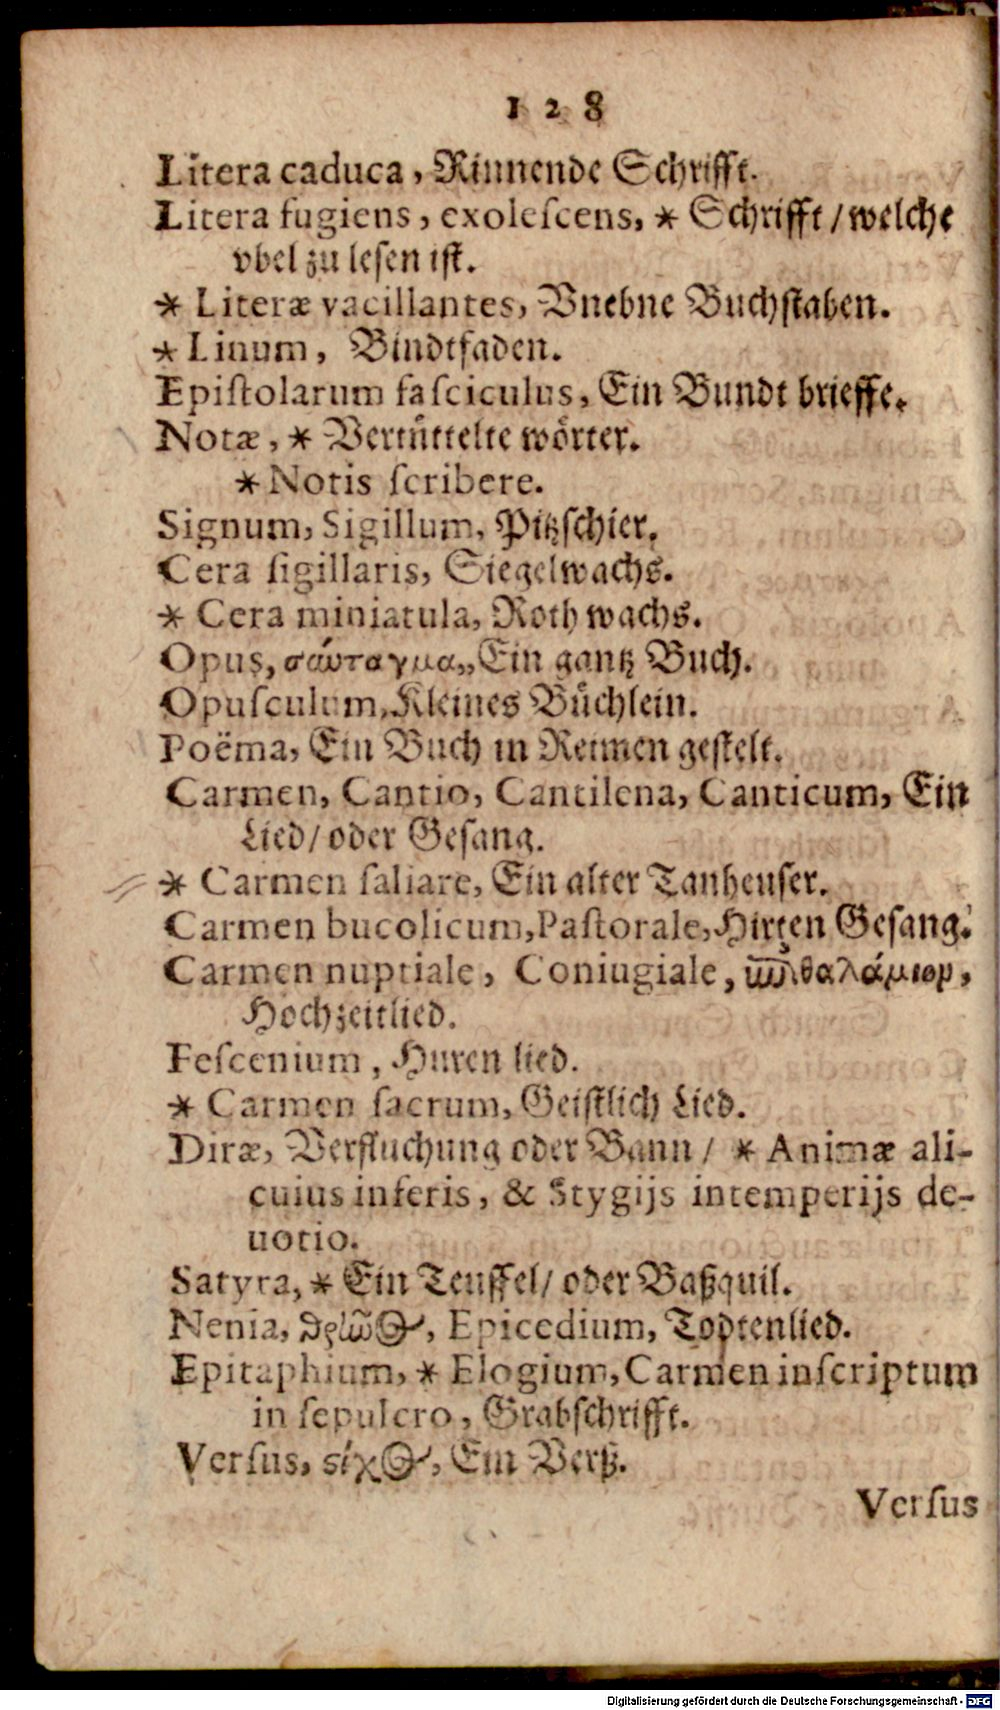 128
Litera caduca, Rinnende Schrifft.
Litera fugiens, exolescens, * Schrifft / welche
vbel zu lesen ist.
* Literæ vacillantes, Vnebne Buchstaben.
* Linum, Bindtfaden.
Epistolarum fasciculus, Ein Bundt brieffe.
Notæ, * Vertüttelte wörter.
* Notis scribere.
Signum, Sigillum, Pitzschier.
Cera sigillaris, Siegelwachs.
* Cera miniatula, Roth wachs.
Opus, σύνταγμα, Ein gantz Buch.
Opusculum, Kleines Büchlein.
Poëma, Ein Buch in Reimen gestelt.
Carmen, Cantio, Cantilena, Canticum, Ein
Lied / oder Gesang.
* Carmen saliare, Ein alter Tanheuser.
Carmen bucolicum, Pastorale, Hirten Gesang.
Carmen nuptiale, Coniugiale, ἐπιθαλάμιον,
Hochzeitlied.
Fescenium, Huren lied.
* Carmen sacrum, Geistlich Lied.
Diræ, Verfluchung oder Bann / * Animæ ali-
cuius inferis, & Stygijs intemperijs de-
uotio.
Satyra, * Ein Teuffel / oder Baßquil.
Nenia, θρῆνος, Epicedium, Todtenlied.
Epitaphium, * Elogium, Carmen inscriptum
in sepulcro, Grabschrifft.
Versus, στίχος, Ein Verß.
Versus
Digitalisierung gefördert durch die Deutsche Forschungsgemeinschaft - DFG